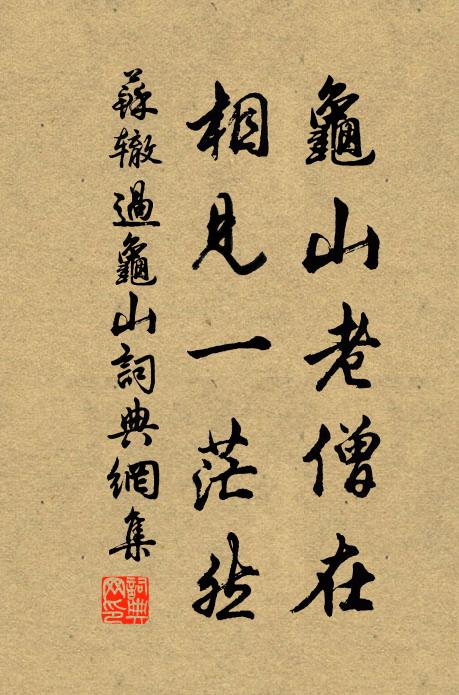 龜山老僧在
相見一茫然
蘇辙過龜山詞典網集
詞典网印